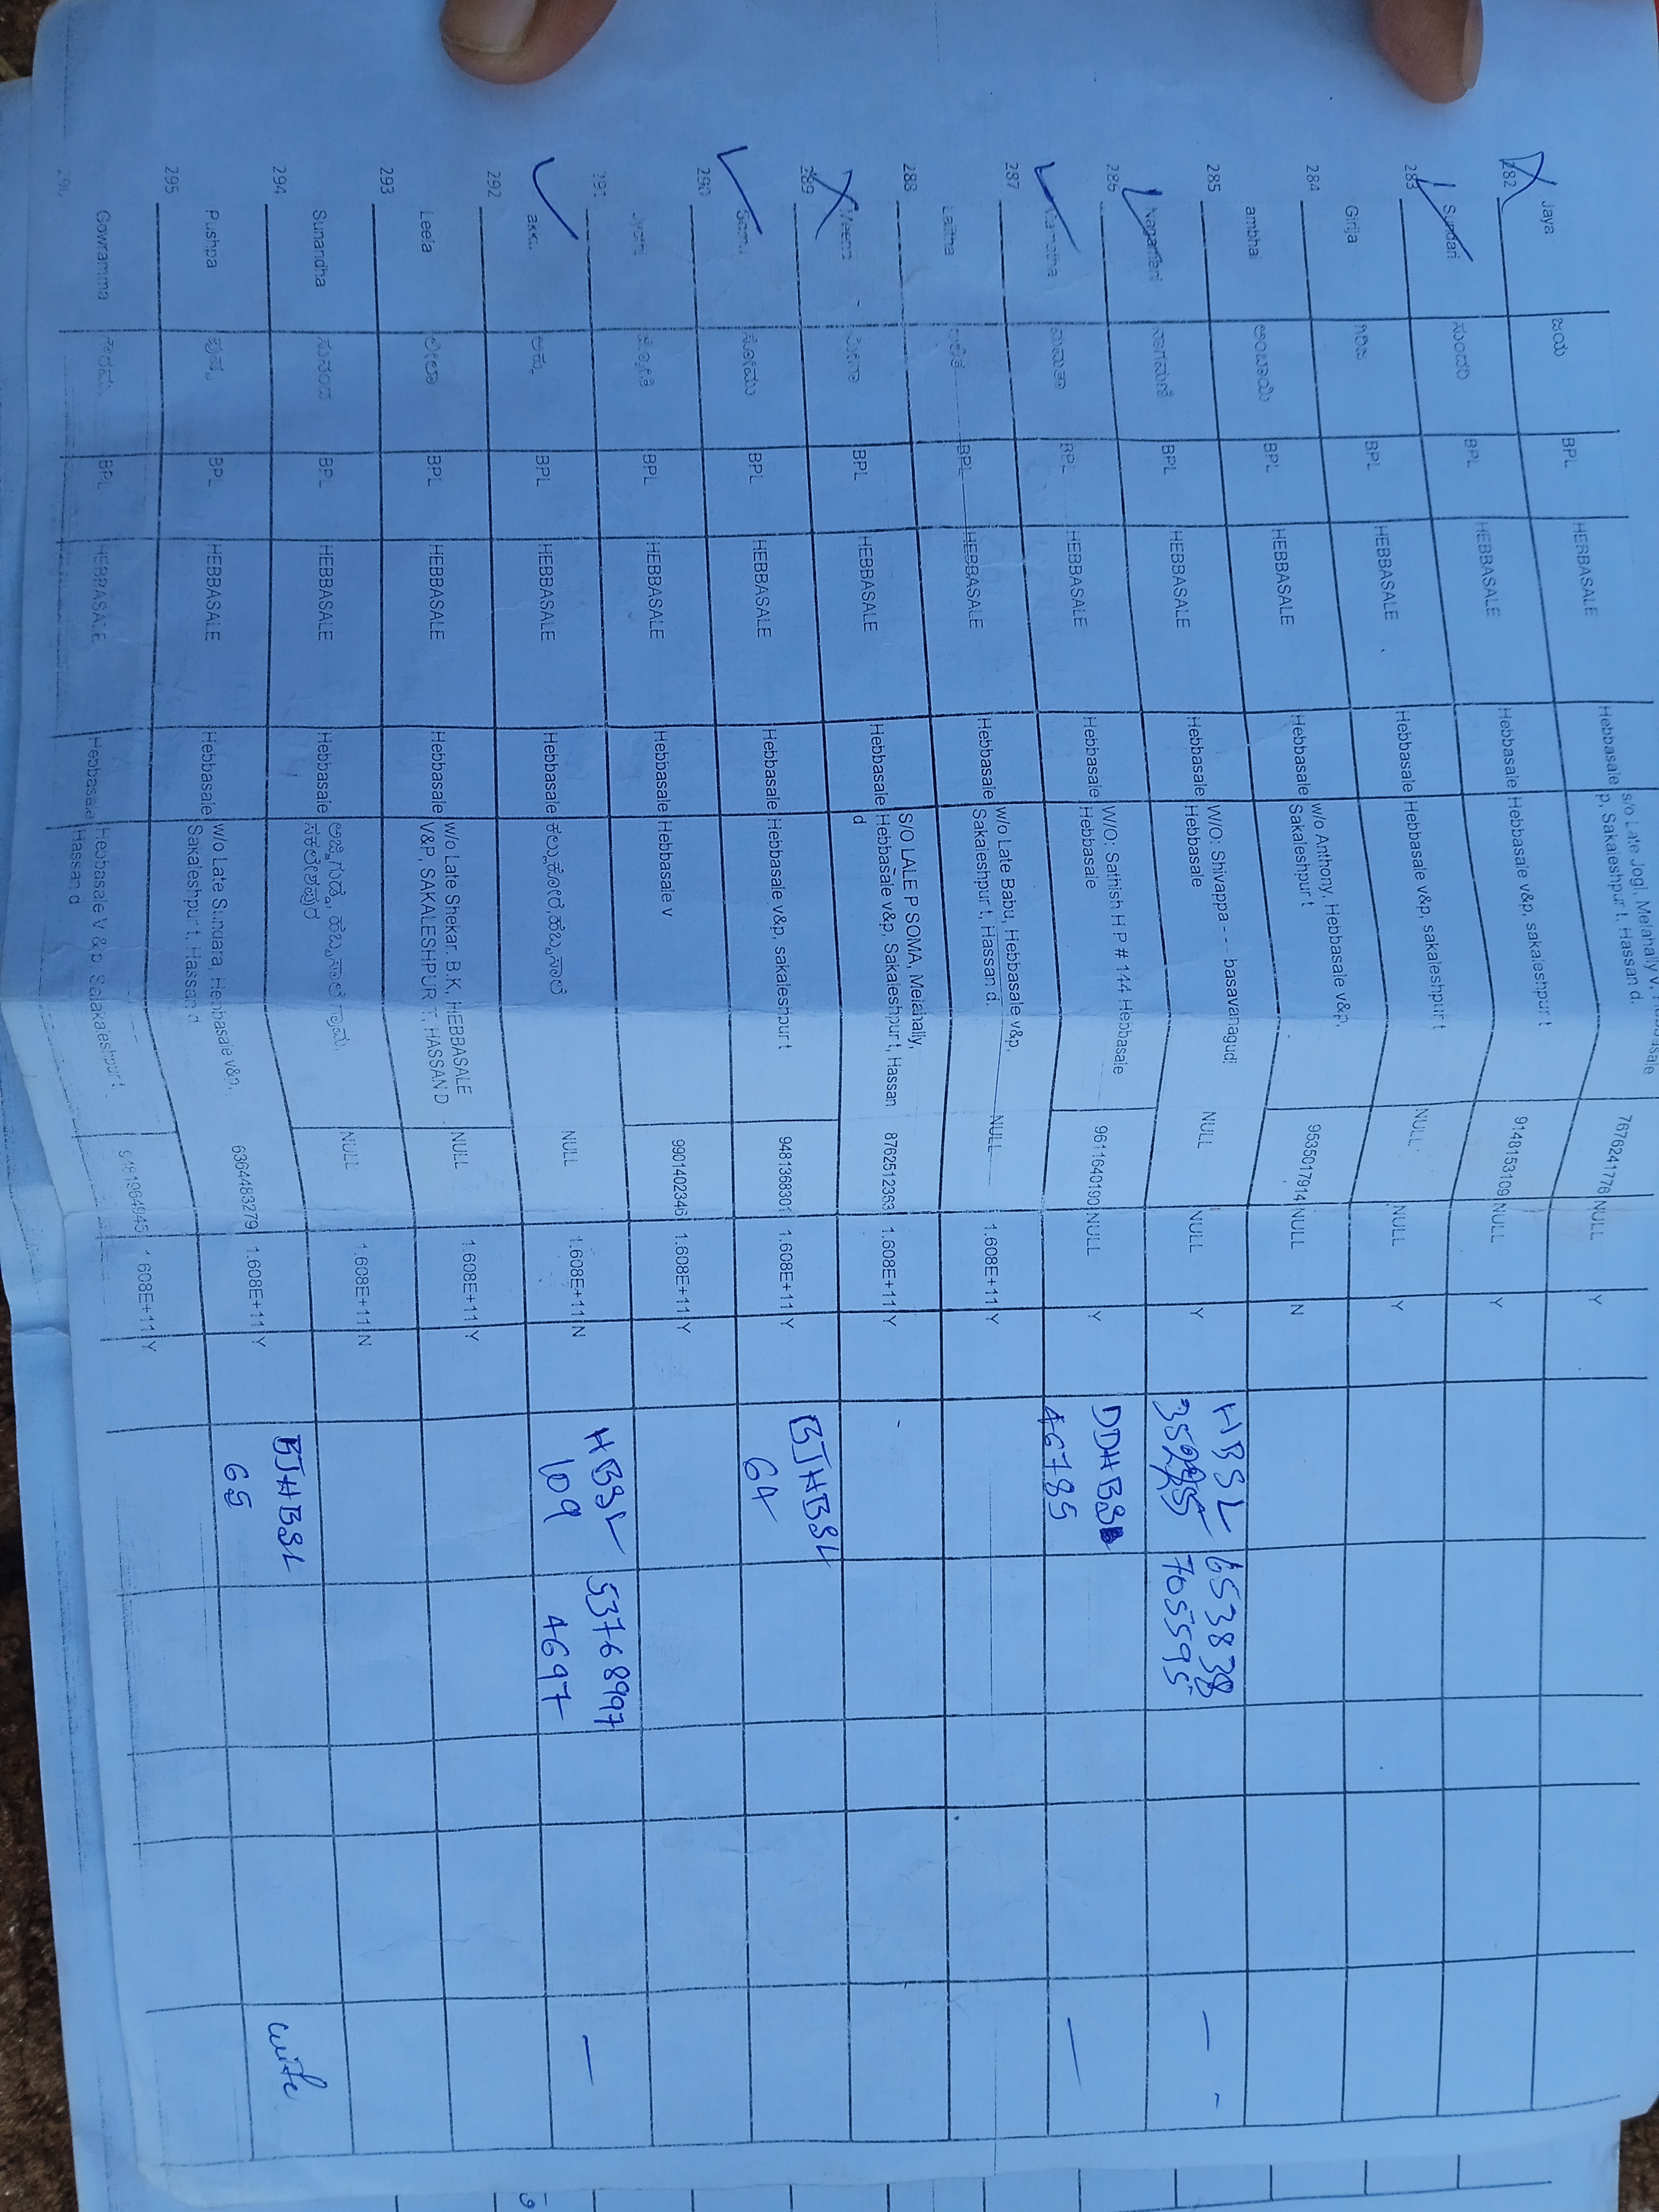 s/o Late Jogi, Melahally V,
282 Jaya ಜಯ BPL HEBBASALE Hebbasale p, Sakaleshpur t. Hassan d. 7676241776 NULL Y
283 Sundari ಸುಂದರಿ BPL HEBBASALE Hebbasale Hebbasale v&p, sakaleshpur t 9148153109 NULL Y
284 Girija ಗಿರಿಜ BPL HEBBASALE Hebbasale Hebbasale v&p, sakaleshpur t NULL NULL Y
w/o Anthony, Hebbasale v&p,
285 ambhai ಅಂಬಾಯಿ BPL HEBBASALE Hebbasale Sakaleshpur t 9535017914 NULL N
W/O: Shivappa - - - basavanagudi HBSL 653838
286 Nagamani ನಾಗಮಣಿ BPL HEBBASALE Hebbasale Hebbasale NULL NULL Y 705595
W/O: Sathish H P # 144 Hebbasale DDHBSL
287 ಮಮತಾ BPL HEBBASALE Hebbasale Hebbasale 9611640190 NULL Y 46785
w/o Late Babu, Hebbasale v&p,
288 Lalitha BPL HEBBASALE Hebbasale Sakaleshpur t, Hassan d. NULL 1.608E+11 Y
S/O LALE P SOMA, Melahally,
289 Meena BPL HEBBASALE Hebbasale Hebbasale v&p, Sakaleshpur t, Hassan 8762512363 1.608E+11 Y
d
BJHBSL
290 ಸೋಮು BPL HEBBASALE Hebbasale Hebbasale v&p, sakaleshpur t 9481368301 1.608E+11 Y 64
291 Jyothi BPL HEBBASALE Hebbasale Hebbasale v 9901402346 1.608E+11 Y
HBSL 53768997
292 akku ಅಕ್ಕು BPL HEBBASALE Hebbasale ಕಲ್ಲುಕೋರೆ,ಹೆಬ್ಬಸಾಲೆ NULL 1.608E+11 N 109 4697
w/o Late Shekar. B.K, HEBBASALE
293 Leela ಲೀಲಾ BPL HEBBASALE Hebbasale V&P, SAKALESHPUR T, HASSAN D NULL 1.608E+11 Y
294 Sunandha ಸುನಂದ BPL HEBBASALE Hebbasale ಸಕಲೇಶಪುರ NULL 1.608E+11 N
w/o Late Sundara, Hebbasale v&p, BJHBSL
295 Pushpa ಪುಷ್ಪ BPL HEBBASALE Hebbasale Sakaleshpur t, Hassan d 6364483279 1.608E+11 Y 65
Hebbasale V & p Salakaleshpur t
Gowramma BPL HEBBASALE Hebbasale Hassan d 9481964945 1.608E+11 Y